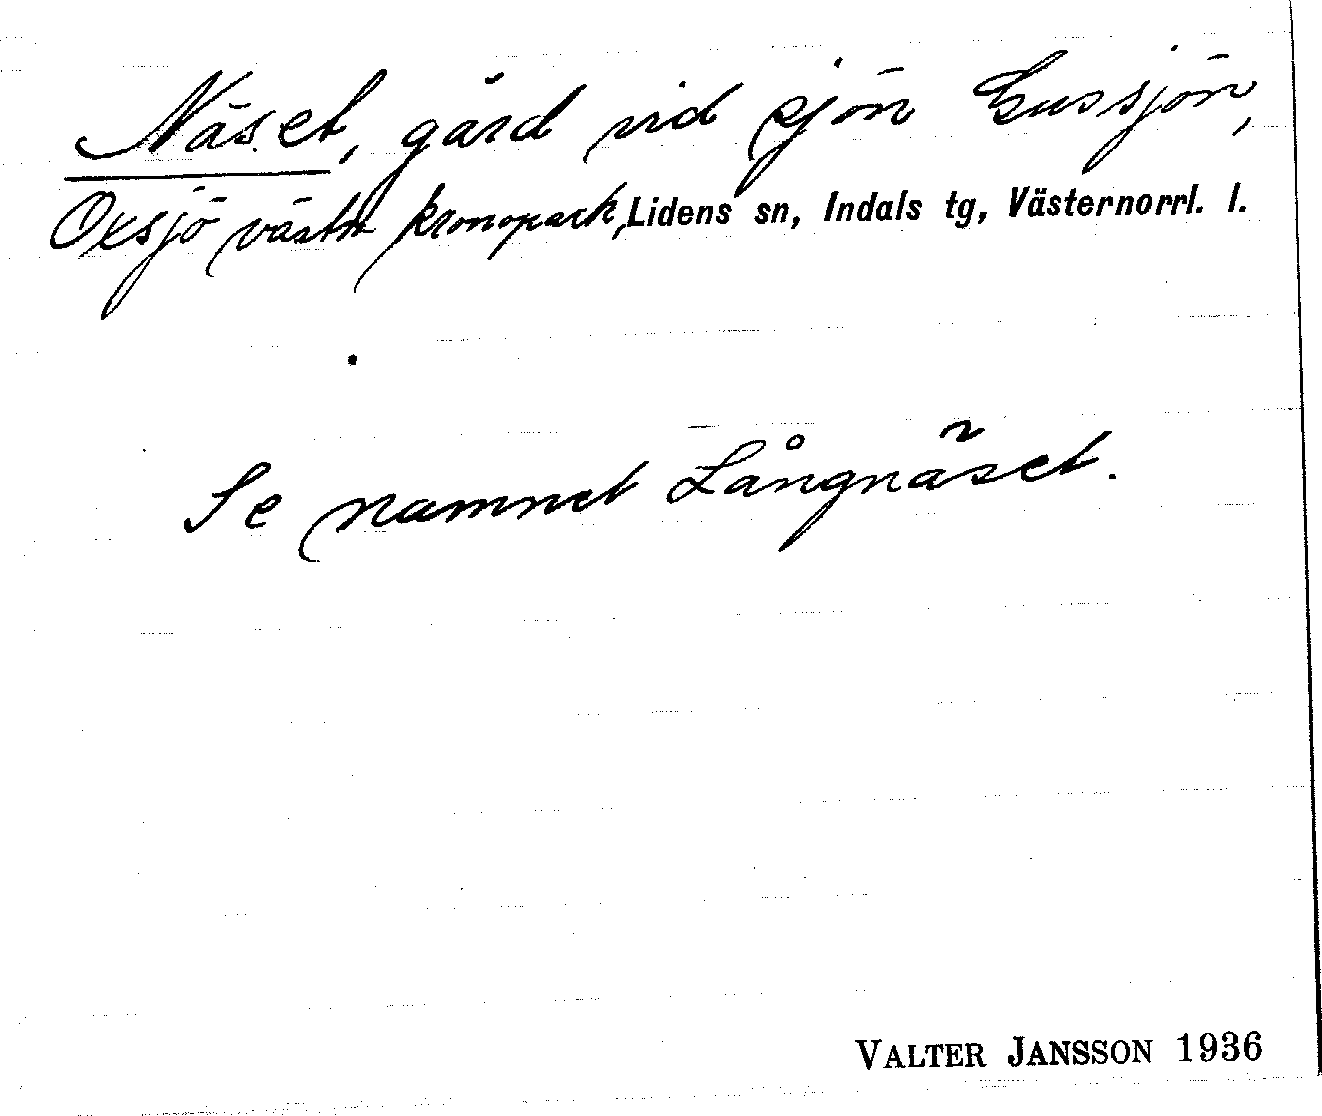 Näset, gård vid sjön Gussjön,
Oxsjö västra kronopark, Lidens sn, Indals tg, Västernorrl. l.
Se namnet Långnäset.
VALTER JANSSON 1936